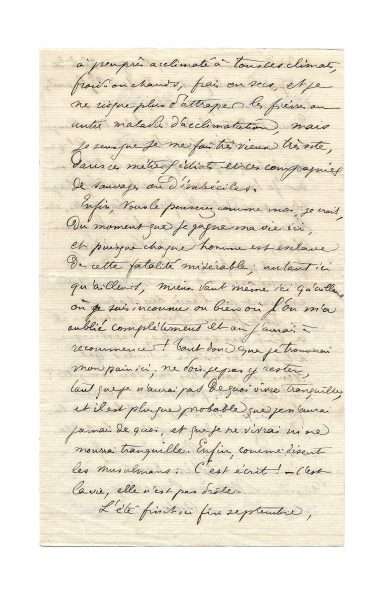 à peu près acclimaté à tous les climats,
froids ou chauds, frais ou secs, et je
ne risque plus d'attraper les fièvres ou
autres maladies d'acclimatation, mais
je sens que je me fais très vieux, très vite,
dans ces métiers idiots et ces compagnies
de sauvages ou d'imbéciles.
Enfin, vous le penserez comme moi, je crois,
Du moment que je gagne ma vie ici,
et puisque chaque homme est esclave
de cette fatalité misérable, autant ici
qu'ailleurs, mieux vaut même ici qu'ailleurs
où je suis inconnu ou bien où l'on m'a
oublié complètement et où j'aurais à
recommencer ! Tant donc que je trouverai
mon pain ici, ne dois-je pas y rester,
tant que je n'aurai pas de quoi vivre tranquille,
et il est plus que probable que je n'aurai
jamais de quoi, et que je ne vivrai ni ne
mourrai tranquille. Enfin, comme disent
les musulmans : C'est écrit ! – C'est
la vie, elle n'est pas drôle.
L'été finit ici fin septembre,